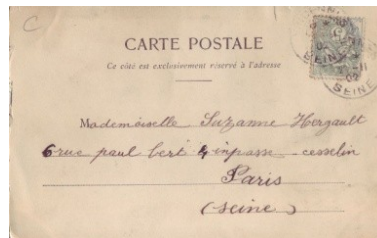 C
CARTE POSTALE
Ce côté est exclusivement réservé à l'adresse
Mademoiselle Suzanne Hergault
6 rue paul bert 4 inpasse cesselin
Paris
(Seine)
SEINE
02
SEINE